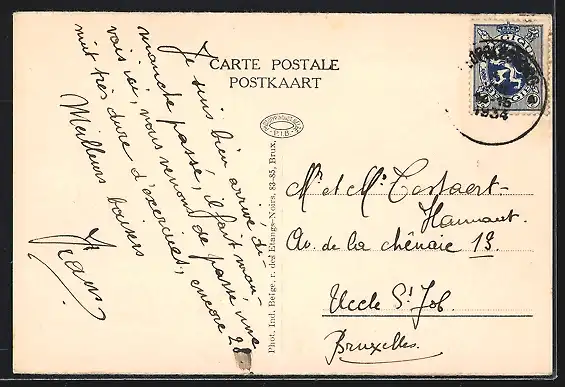 CARTE POSTALE
POSTKAART
Je suis bien arrivé di-
manche passé, il fait mau-
vais ici, nous venons de passé une
nuit très dure d'exercices, encore 28
Meilleurs baisers
P.I.B.
Phot. Ind. Belge, r. des Etangs-Noirs, 83-85, Brux.
BELGIQUE
BELGIE
1934
Mr et Me Costaert-
Hannaut.
Av. de la chênaie 19.
Uccle St Job.
Bruxelles.